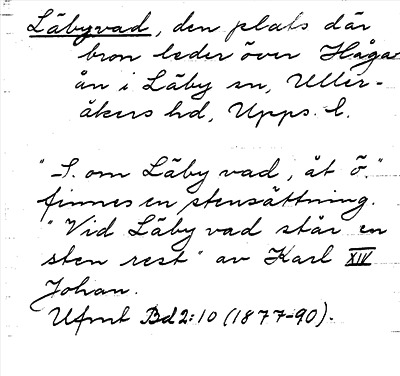 Läbyvad, den plats där
bron leder över Håga-
ån i Läby sn, Uller-
åkers hd, Upps. l.
"S. om Läby vad, åt ö."
finnes en stensättning.
"Vid Läby vad står en
sten rest" av Karl XIV
Johan.
Ufmt Bd 2:10 (1877-90).